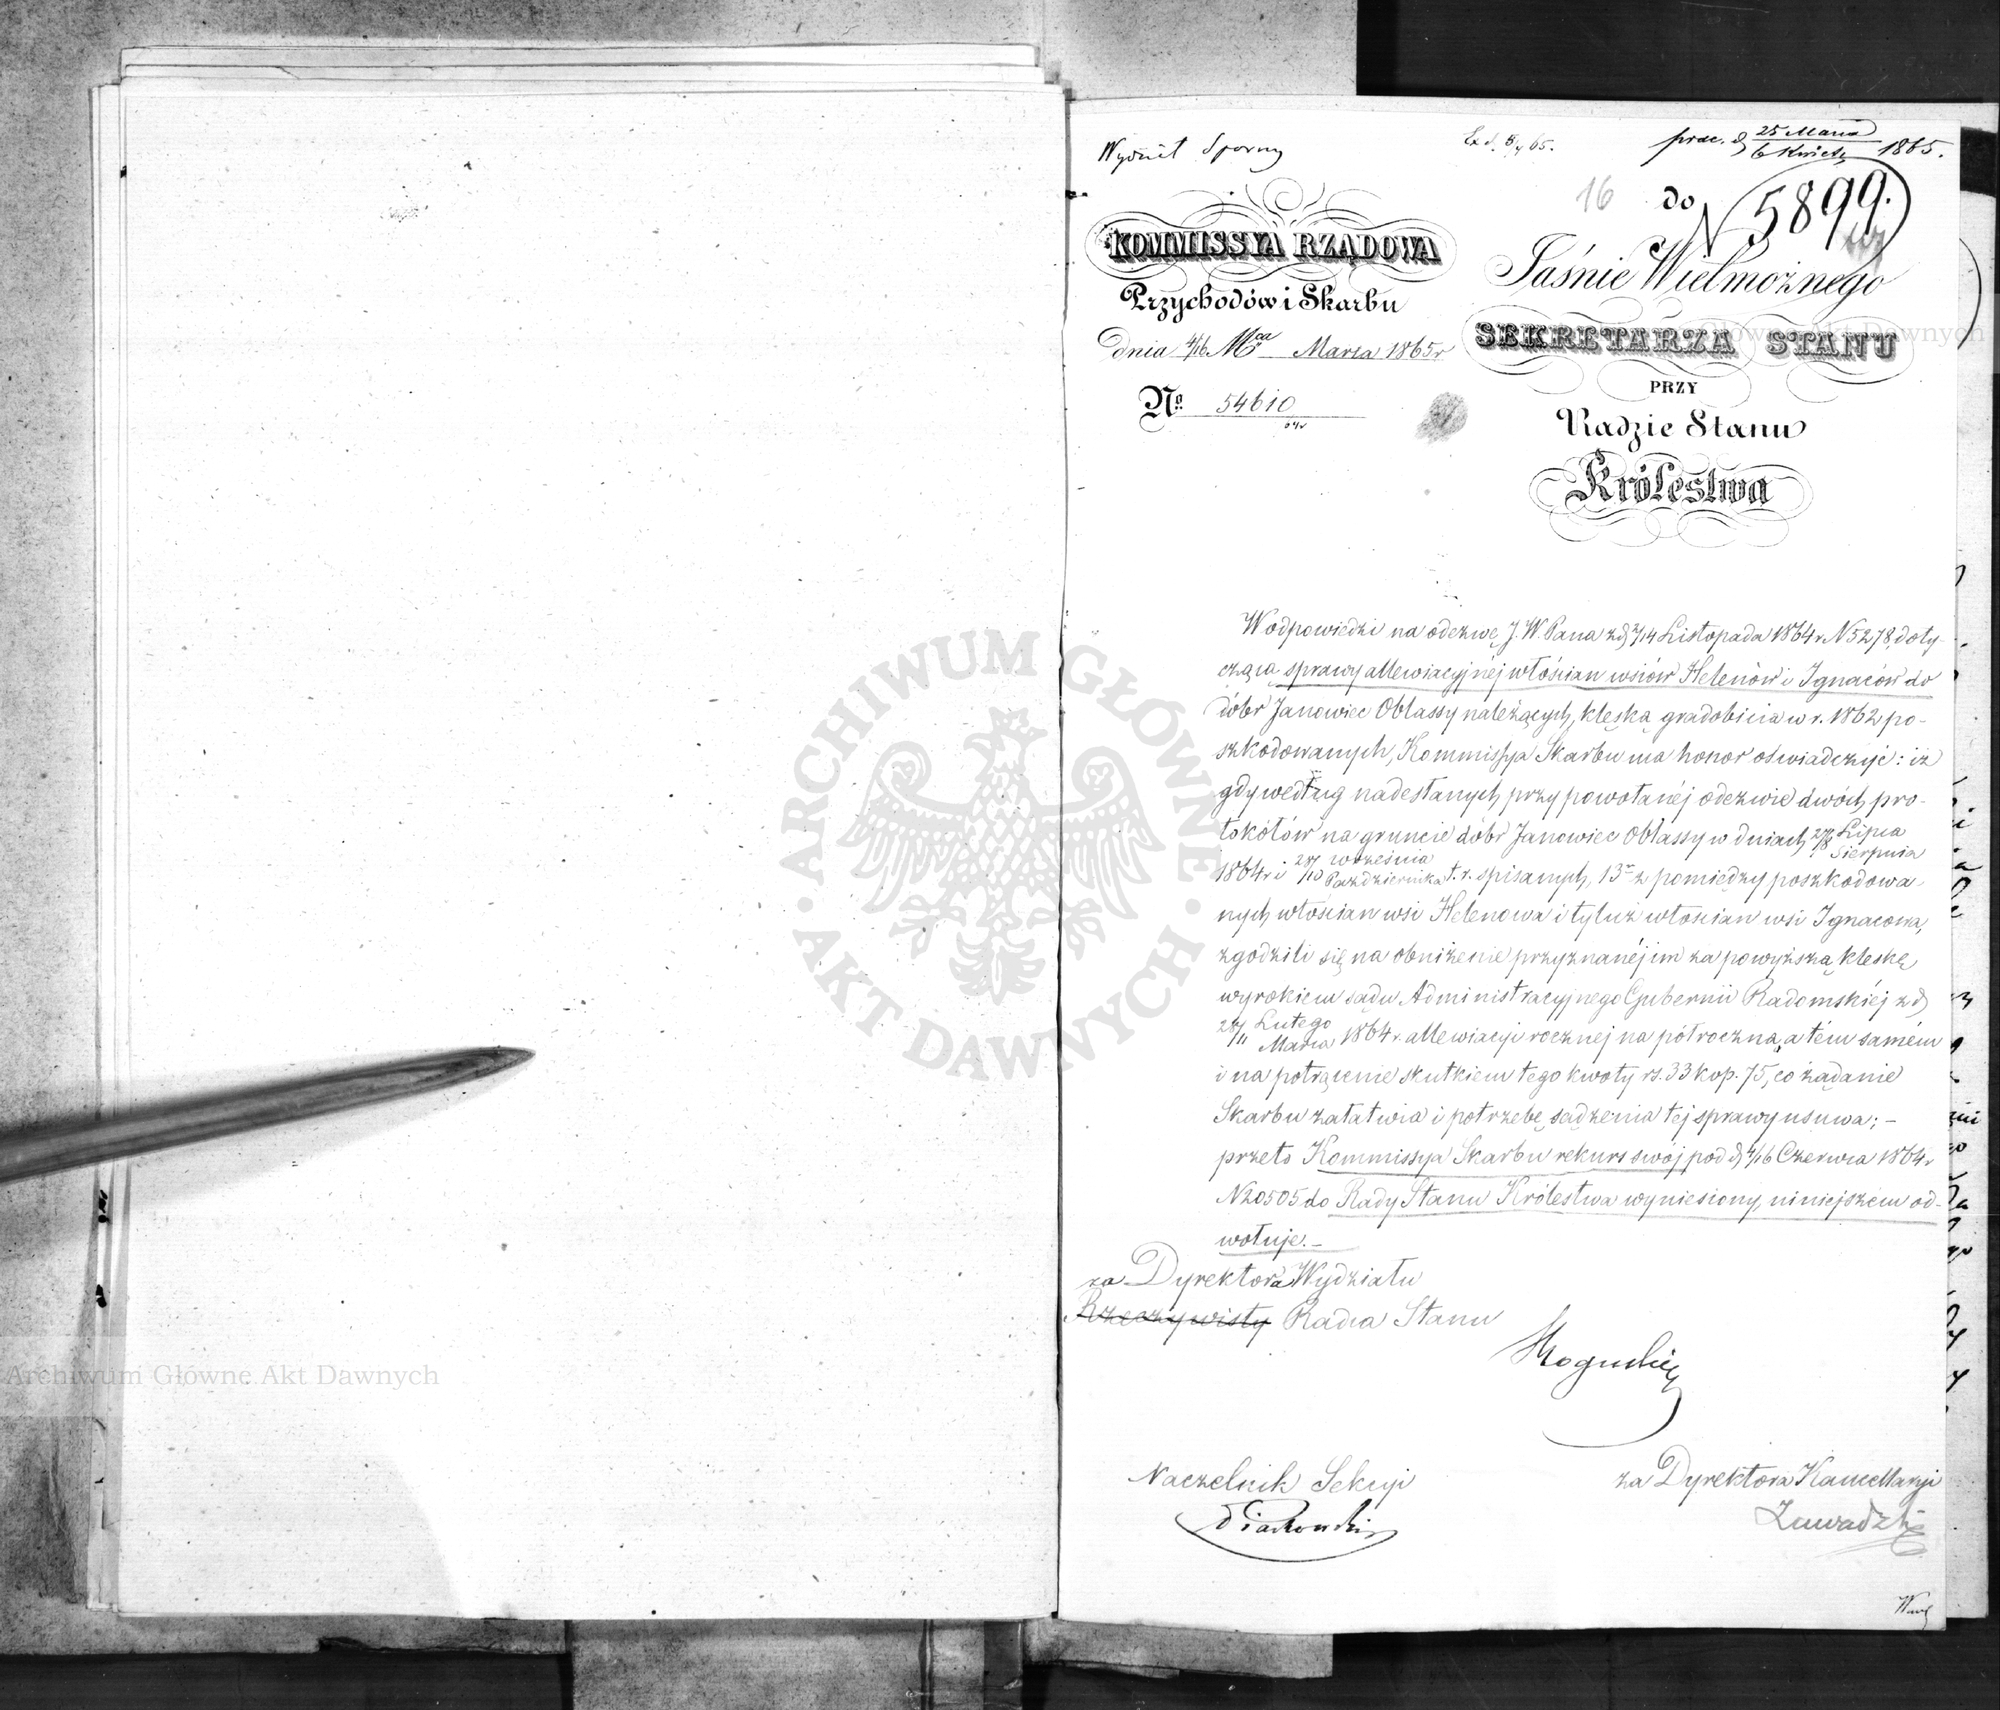 Wydział Sporny
prze. d. 25 Marca / 6 Kwiet. 1865.
16
do
N 5899.
KOMMISSYA RZĄDOWA
Przychodów i Skarbu
dnia 4/16 Mca Marca 1865 r
No. 54610
64r
Jaśnie Wielmożnego
SEKRETARZA STANU
PRZY
Radzie Stanu
Królestwa
W odpowiedzi na odezwę J. W. Pana z d. 2/14 Listopada 1864 r. N 5278, doty-
czącą sprawy allewiacyjnéj włościan wsiów Helenów i Ignaców do
dóbr Janowiec Oblassy należących, klęską gradobicia w r. 1862 po-
szkodowanych, Kommissya Skarbu ma honor oświadczyć: iż
gdy według nadesłanych przy powołanéj odezwie dwóch pro-
tokółów na gruncie dóbr Janowiec Oblassy w dniach 27/8 Lipca / Sierpnia
1864 r i 28/10 Września / Października t. r. spisanych, 13r z pomiędzy poszkodowa-
nych włościan wsi Helenowa i tyluż włościan wsi Ignacowa,
zgodzili się na obniżenie przyznanéj im za powyższą klęskę
wyrokiem sądu Administracyjnego Gubernii Radomskiéj z d.
28/11 Lutego / Marca 1864 r. allewiacyi rocznej na półroczną, a tém samém
i na potrącenie skutkiem tego kwoty rs. 33 kop. 75, co żądanie
Skarbu załatwia i potrzebę sądzenia tej sprawy usuwa; –
przeto Kommissya Skarbu rekurs swój pod d. 4/16 Czerwca 1864 r
N 20505 do Rady Stanu Królestwa wyniesiony, niniejszém od-
wołuje. –
za Dyrektora Wydziału
Rzeczywisty Radca Stanu
Naczelnik Sekcyi
za Dyrektora Kancellaryi
Zawadzki
ARCHIWUM GŁÓWNE AKT DAWNYCH
Archiwum Główne Akt Dawnych
Główne Akt Dawnych